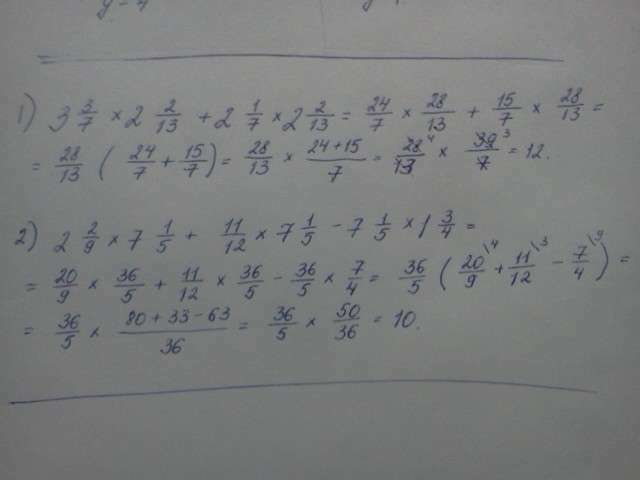 1) 3 3/7 × 2 2/13 + 2 1/7 × 2 2/13 = 24/7 × 28/13 + 15/7 × 28/13 =
= 28/13 ( 24/7 + 15/7 ) = 28/13 × 24+15/7 = 28 4/13 × 39 3/7 = 12.
2) 2 2/9 × 7 1/5 + 11/12 × 7 1/5 - 7 1/5 × 1 3/4 =
= 20/9 × 36/5 + 11/12 × 36/5 - 36/5 × 7/4 = 36/5 ( 20\4/9 + 11\3/12 - 7\9/4 ) =
= 36/5 × 80+33-63/36 = 36/5 × 50/36 = 10.